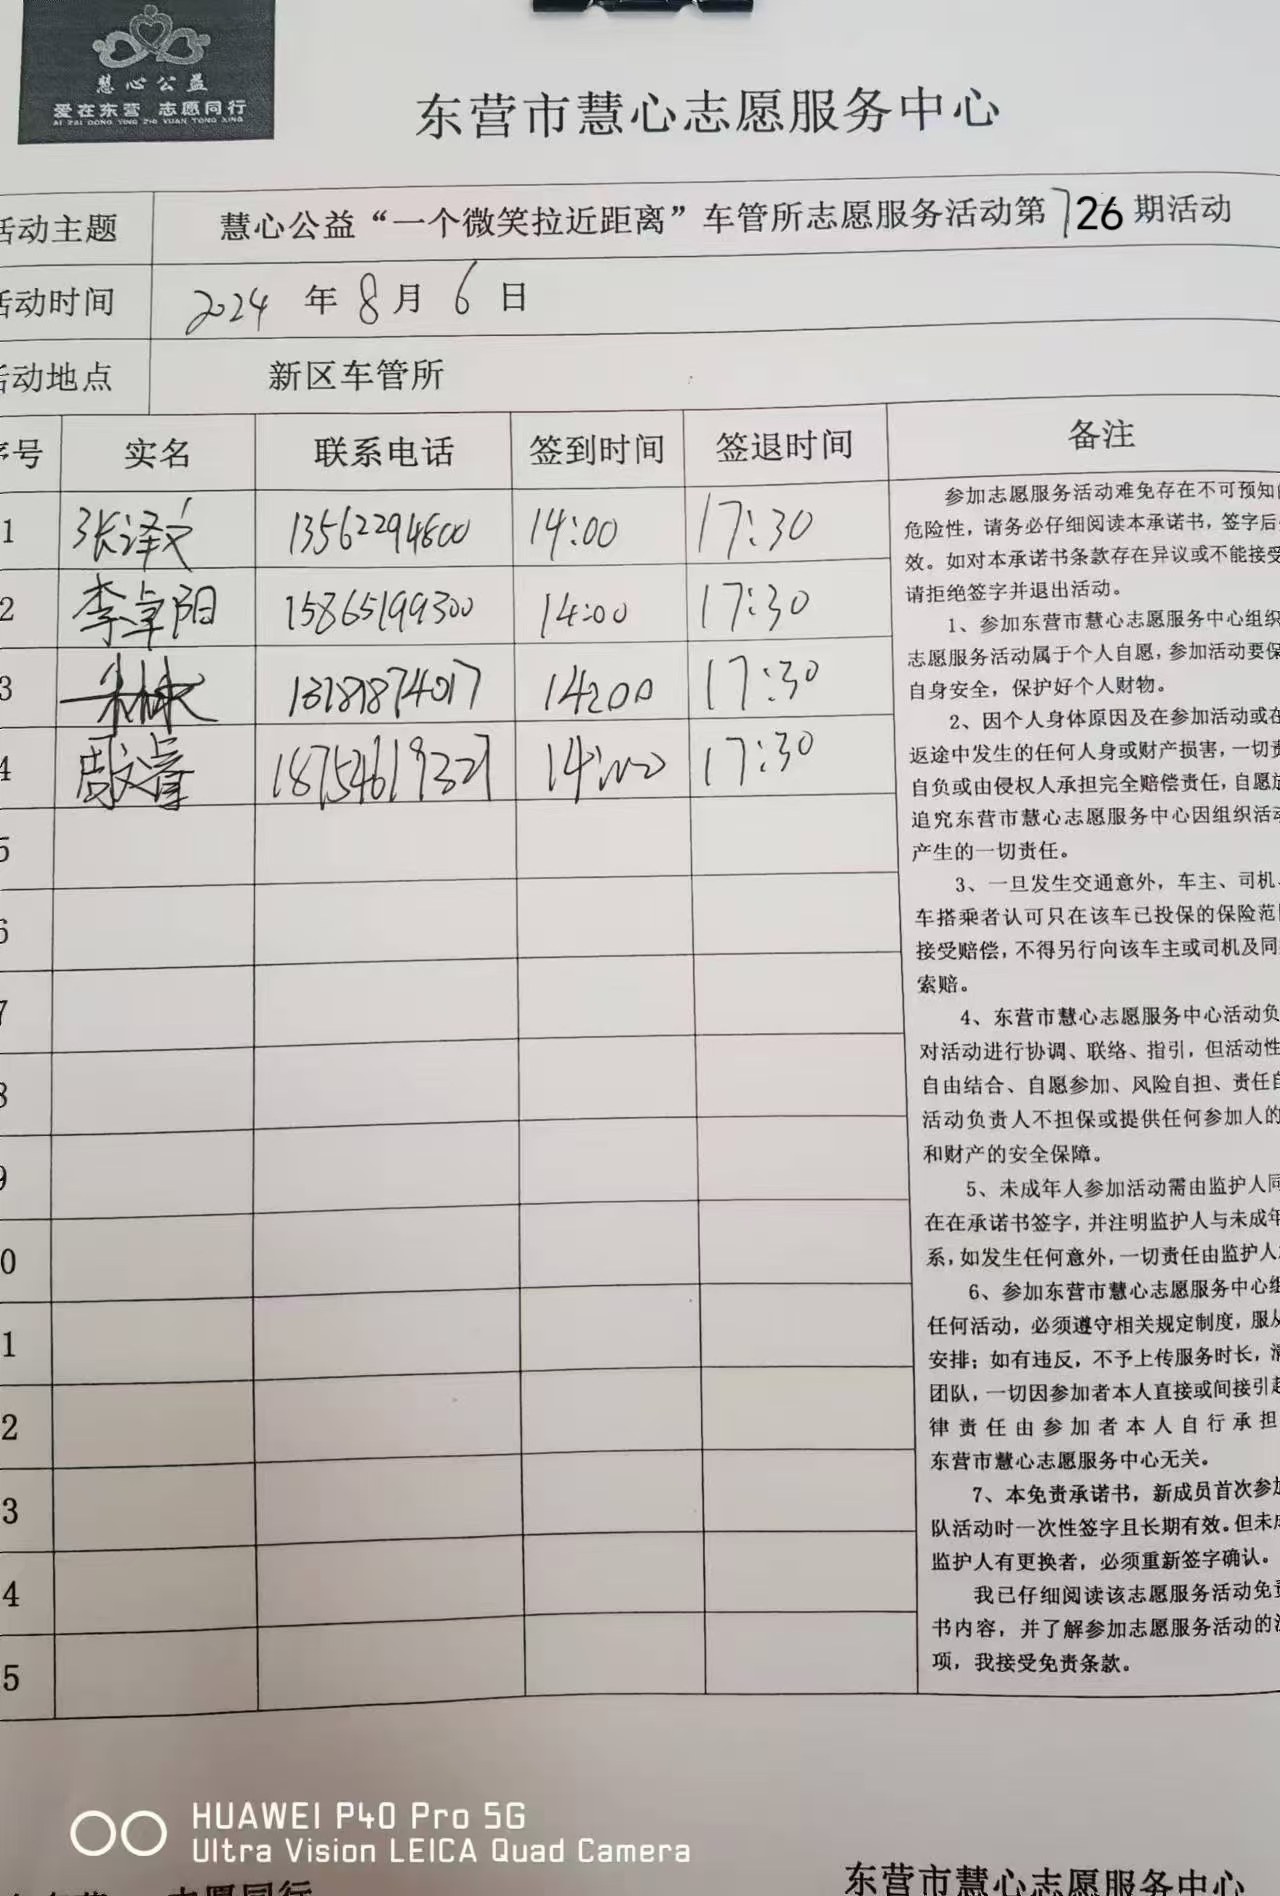 慧心公益
爱在东营 志愿同行
AI ZAI DONG YING ZHI YUAN TONG XING
东营市慧心志愿服务中心
活动主题 慧心公益“一个微笑拉近距离”车管所志愿服务活动第726期活动
活动时间 2024 年 8 月 6 日
活动地点 新区车管所
序号 实名 联系电话 签到时间 签退时间 备注
1 张泽文 13562294600 14:00 17:30
2 李卓阳 15865199300 14:00 17:30
3 13181874017 14:00 17:30
4 周文睿 18754619327 14:00 17:30
5
6
7
8
9
0
1
2
3
4
5
参加志愿服务活动难免存在不可预知的
危险性，请务必仔细阅读本承诺书，签字后
效。如对本承诺书条款存在异议或不能接受
请拒绝签字并退出活动。
1、参加东营市慧心志愿服务中心组织
志愿服务活动属于个人自愿，参加活动要保
自身安全，保护好个人财物。
2、因个人身体原因及在参加活动或在
返途中发生的任何人身或财产损害，一切责
自负或由侵权人承担完全赔偿责任，自愿放
追究东营市慧心志愿服务中心因组织活动
产生的一切责任。
3、一旦发生交通意外，车主、司机、
车搭乘者认可只在该车已投保的保险范围
接受赔偿，不得另行向该车主或司机及同
索赔。
4、东营市慧心志愿服务中心活动负
对活动进行协调、联络、指引，但活动性
自由结合、自愿参加、风险自担、责任自
活动负责人不担保或提供任何参加人的
和财产的安全保障。
5、未成年人参加活动需由监护人同
在在承诺书签字，并注明监护人与未成年
系，如发生任何意外，一切责任由监护人
6、参加东营市慧心志愿服务中心组
任何活动，必须遵守相关规定制度，服从
安排；如有违反，不予上传服务时长，清
团队，一切因参加者本人直接或间接引起
律责任由参加者本人自行承担
东营市慧心志愿服务中心无关。
7、本免责承诺书，新成员首次参加
队活动时一次性签字且长期有效。但未成
监护人有更换者，必须重新签字确认。
我已仔细阅读该志愿服务活动免责
书内容，并了解参加志愿服务活动的
项，我接受免责条款。
HUAWEI P40 Pro 5G
Ultra Vision LEICA Quad Camera
志愿同行
东营市慧心志愿服务中心